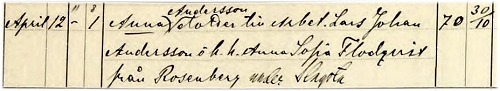 Andersson
April 12 " 3/1 Anna Dotter till Arbet. Lars Johan 70 30/10
Andersson o. h. h. Anna Sofia Flodqvist
från Rosenberg under